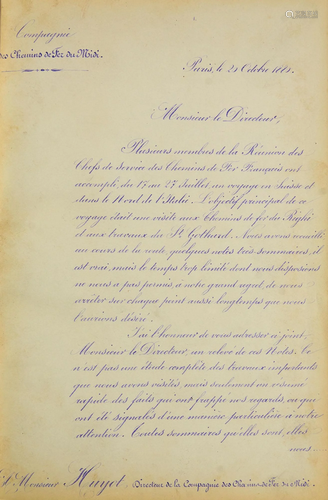 Compagnie
des Chemins de Fer du Midi.
Paris, le 21 Octobre 1881.
Monsieur le Directeur,
Plusieurs membres de la Réunion des
Chefs de Service des Chemins de Fer Français ont
accompli, du 17 au 27 Juillet, un voyage en Suisse et
dans le Nord de l'Italie. L'objectif principal de ce
voyage était une visite aux Chemins de fer du Righi
et aux travaux du St Gothard. Nous avons recueilli
au cours de la route, quelques notes très-sommaires, il
est vrai, mais le temps trop limité dont nous disposions
ne nous a pas permis, à notre grand regret, de nous
arrêter sur chaque point aussi longtemps que nous
l'aurions désiré.
J'ai l'honneur de vous adresser ci-joint,
Monsieur le Directeur, un relevé de ces Notes. Ce
n'est pas une étude complète des travaux importants
que nous avons visités, mais seulement un résumé
rapide des faits qui ont frappé nos regards, ou qui
ont été signalés d'une manière particulière à notre
attention. Toutes sommaires qu'elles sont, elles
nous
Monsieur Huyot, Directeur de la Compagnie des Chemins de Fer du Midi.